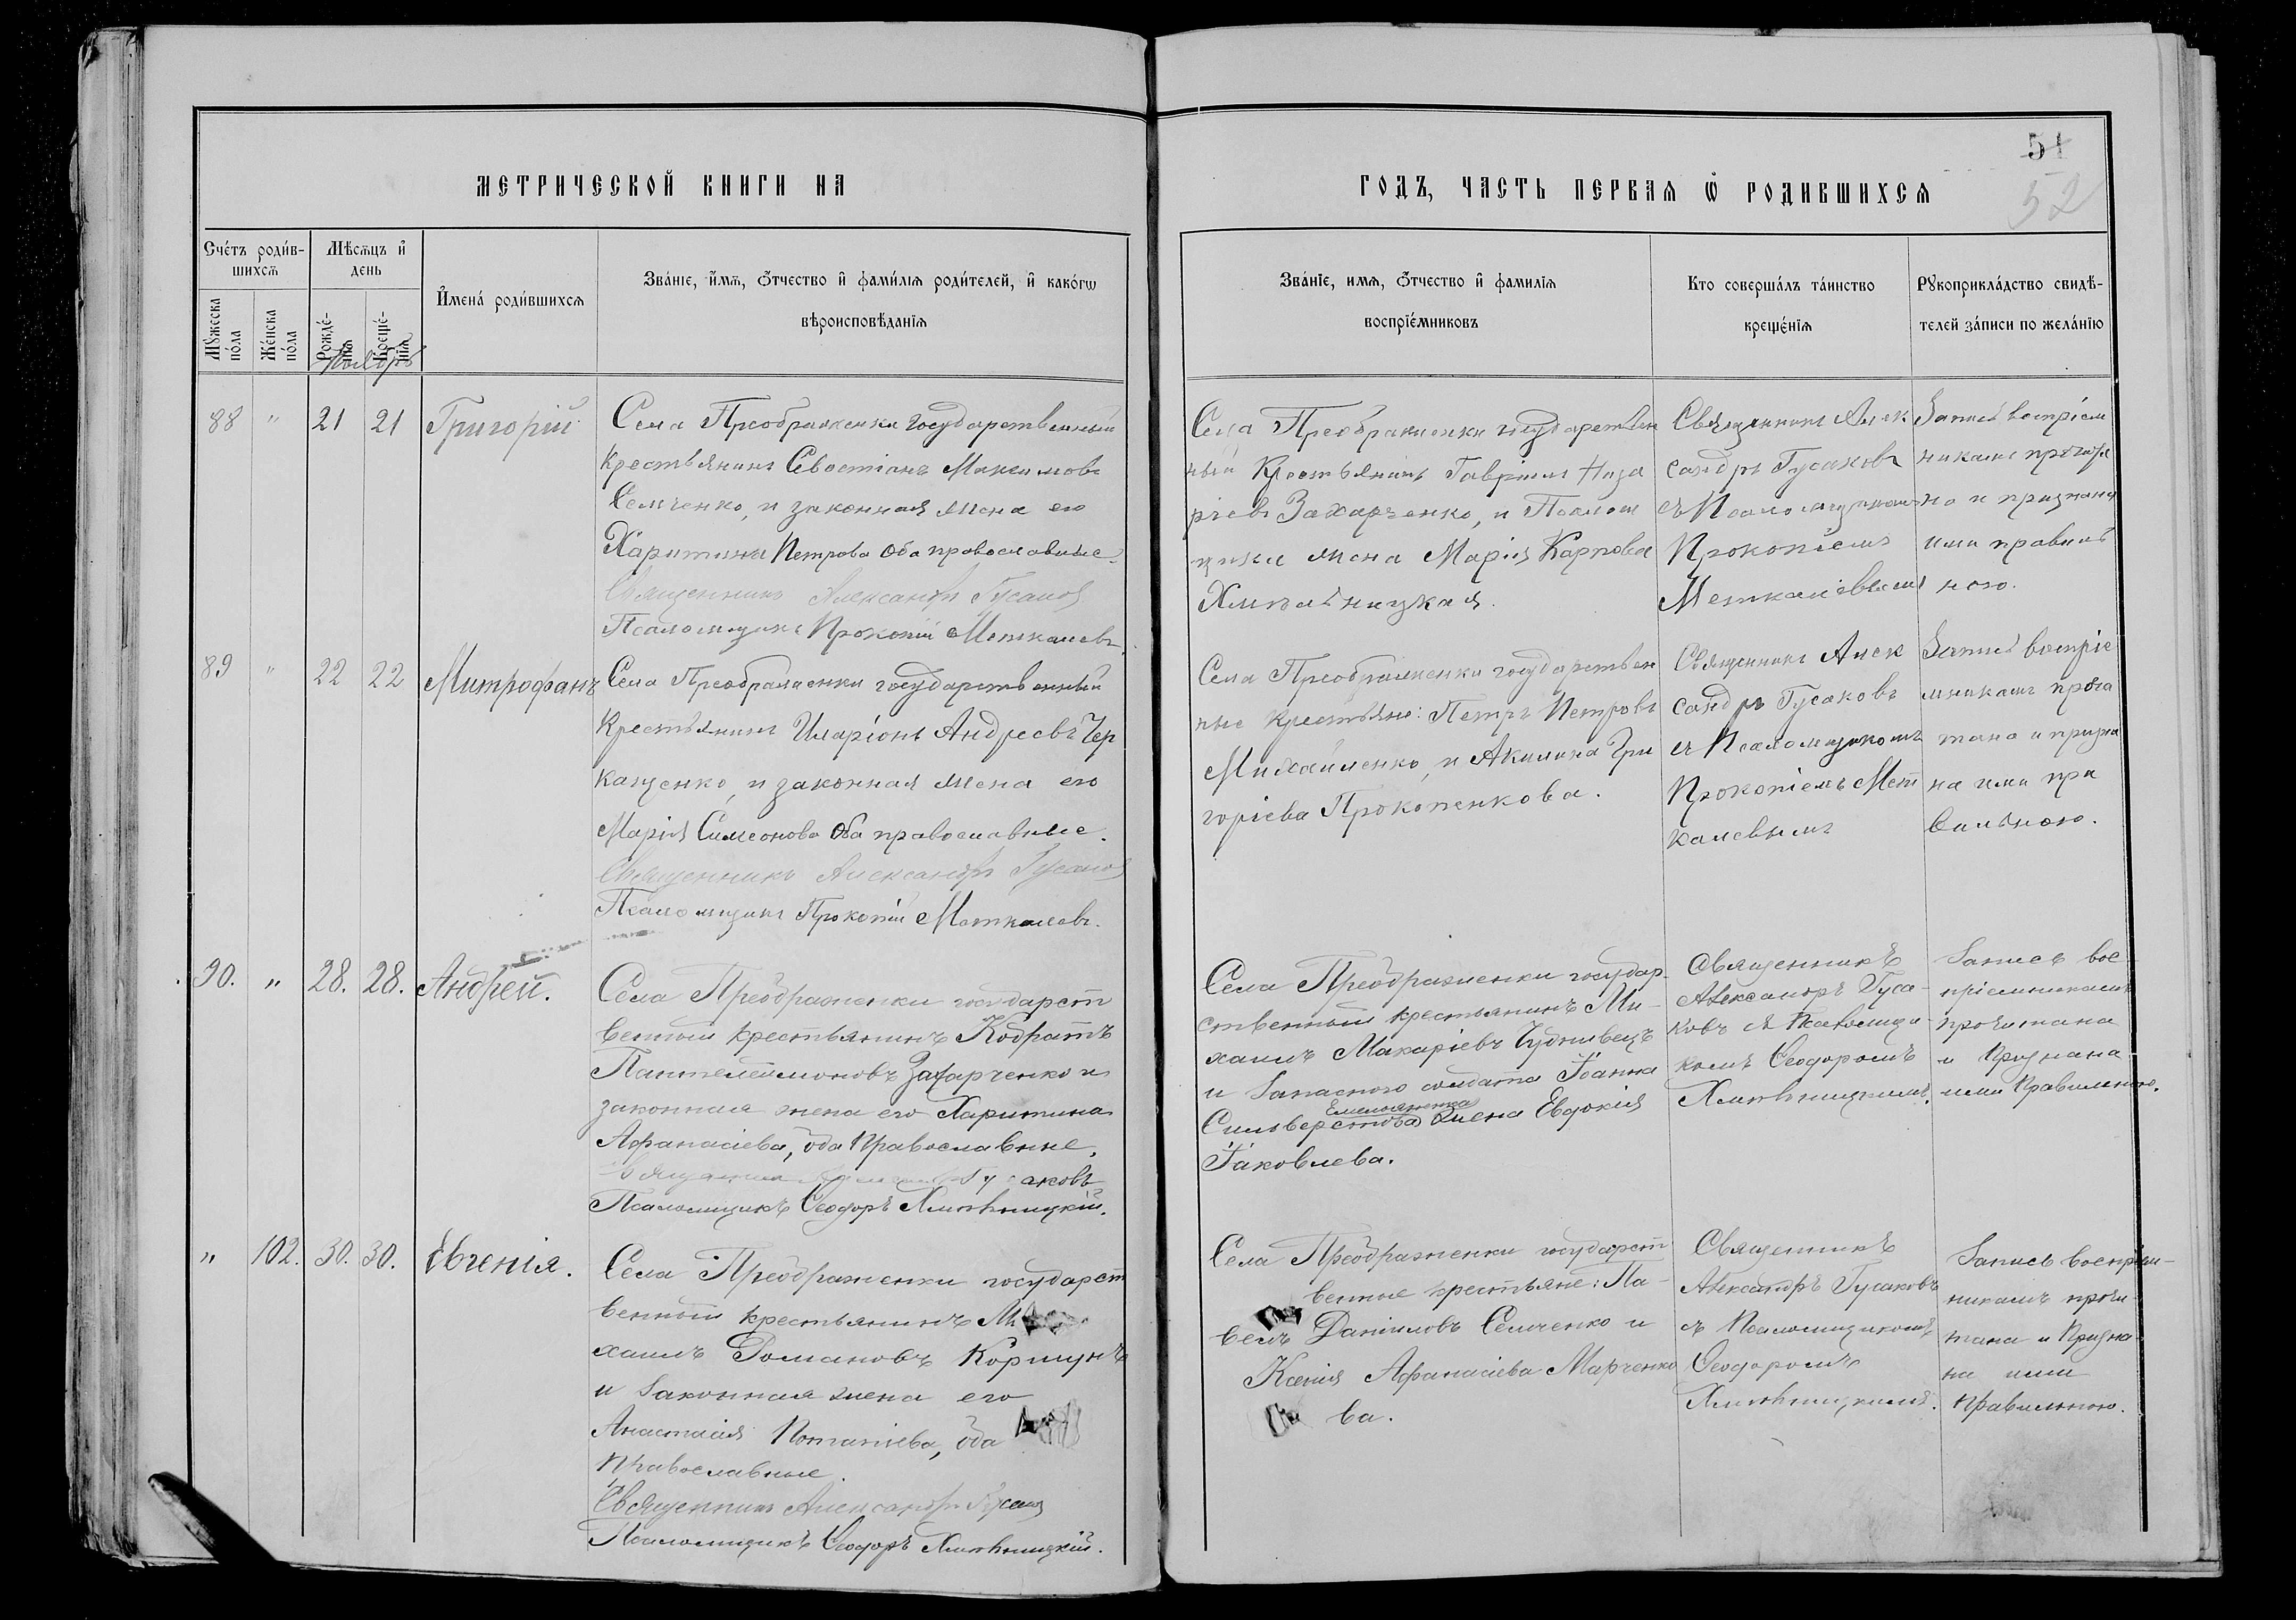 51
52
МЕТРИЧЕСКОЙ КНИГИ НА
ГОДЪ, ЧАСТЬ ПЕРВАЯ Ѿ РОДИВШИХСЯ
Сче́тъ роди́в-
шихсѧ
Мѣсѧцъ и҆
день
Мꙋжеска
по́ла
Же́нска
по́ла
Рожде́-
нїѧ
Креще́-
нїѧ
И҆мена́ роди́вшихсѧ
Зва́нїе, и҆́мѧ, ѻ҆́тчество и҆ фами́лїѧ роди́телей, и҆ како́гѡ
вѣроисповѣ́данїѧ
Зва́нїе, имѧ, ѻ҆́тчество и҆ фамилїѧ
воспрїе́мниковъ
Кто соверша́лъ та́инство
креще́нїѧ
Рꙋкоприкла́дство свидѣ́-
телей за́писи по жела́нїю
88 " 21 21 Григорій
Села Преображенки государственный
крестьянинъ Севостіанъ Максимовъ
Семченко, и законная жена его
Харитина Петрова оба православные
Священникъ Александръ Гусаковъ
Псаломщикъ Прокопій Меткалевъ.
Села Преображенки государствен
ный крестьянинъ Гавріилъ Наза
ріевъ Захарченко, и Псалом
щика жена Марія Карпова
Хмѣльницкая.
Священникъ Алек
сандръ Гусаковъ
съ Псаломщикомъ
Прокопіемъ
Меткалевымъ
Запись воспріем
никамъ прочита
на и признана
ими правиль
ною.
89 " 22 22 Митрофанъ
Села Преображенки государственный
крестьянинъ Иларіонъ Андреевъ Чер
кащенко, и законная жена его
Марія Симеонова оба православные.
Священникъ Александръ Гусаковъ
Псаломщикъ Прокопій Меткалевъ.
Села Преображенки государствен
ные крестьяне: Петръ Петровъ
Михайленко, и Акилина Гри
горіева Прокопенкова.
Священникъ Алек
сандръ Гусаковъ
съ Псаломщикомъ
Прокопіемъ Мет
калевымъ
Запись воспріе
мникамъ прочи
тана и призна
на ими пра
вильною.
90. " 28. 28. Андрей.
Села Преображенки государст
венный крестьянинъ Кодратъ
Пантелеймоновъ Захарченко и
законная жена его Харитина
Афанасіева, оба православные.
Священникъ Александръ Гусаковъ
Псаломщикъ Ѳеодоръ Хмѣльницкій.
Села Преображенки государ-
ственный крестьянинъ Ми-
хаилъ Макаріевъ Чудновецъ
и запасного солдата Іоанна
Емельяненка
Сильверстова жена Евдокія
Іаковлева.
Священникъ
Александръ Гуса-
ковъ съ Псаломщи-
комъ Ѳеодоромъ
Хмѣльницкимъ.
Запись вос-
пріемникамъ
прочитана
и признана
ими правильною.
" 102. 30. 30. Евгенія.
Села Преображенки государст
венный крестьянинъ Ми
хаилъ Романовъ Коршунъ
и законная жена его
Анастасія Потапіева, оба
православные.
Священникъ Александръ Гусаковъ
Псаломщикъ Ѳеодоръ Хмѣльницкій.
Села Преображенки государст
венные крестьяне: Па-
велъ Даніиловъ Семченко и
Ксенія Афанасіева Марченко
ва.
Священникъ
Александръ Гусаковъ
съ Псаломщикомъ
Ѳеодоромъ
Хмѣльницкимъ.
Запись воспріем-
никамъ прочи
тана и призна
на ими
правильною.